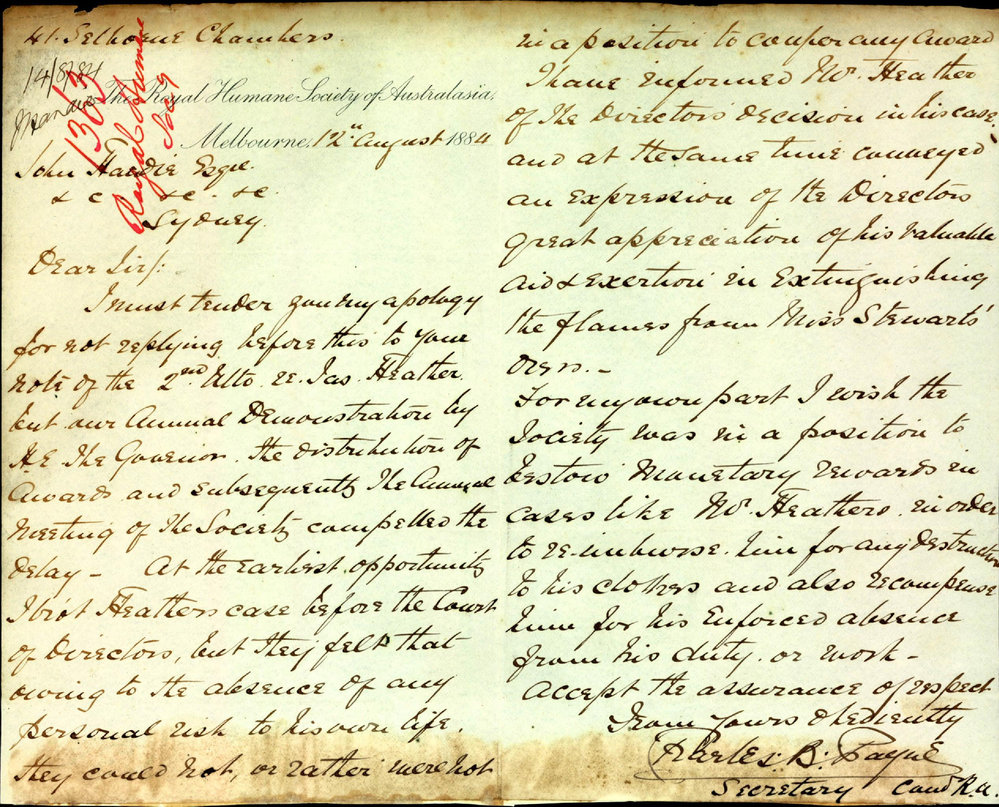 41. Selborne Chambers.
14/8/84
1363
Royal Humane
Socy
The Royal Humane Society of Australasia,
Melbourne, 12th August 1884
John Hardie Esqre.
&c &c. &c
Sydney.
Dear Sir/:
I must tender you my apology
for not replying before this to your
note of the 2nd Ulto. re. Jas. Heather.
but our Annual Demonstration by
H.E. The Govenior. the distribution of
Awards and subsequently The Annual
Meeting of The Society compelled the
delay — At the earliest opportunity
I brot Heathers case before the Court
of Directors, but they felt that
owing to the absence of any
personal risk to his own life.
they could not, or rather were not
in a position to confer any Award
I have informed Mr. Heather
of The Directors decision in his case
and at the same time conveyed
an expression of the Directors
great appreciation of his valuable
aid & exertion in Extinguishing
the flames from Miss Stewarts'
Dress. —
For my own part I wish the
Society was in a position to
bestow Monetary rewards in
cases like Mr. Heathers. in order
to re-imburse him for any destruction
to his clothes and also recompense
him for his Enforced absence
from his duty. or work —
Accept the assurance of respect
from Yours Obediently
Charles B. Payne
Secretary Comdr R.N.